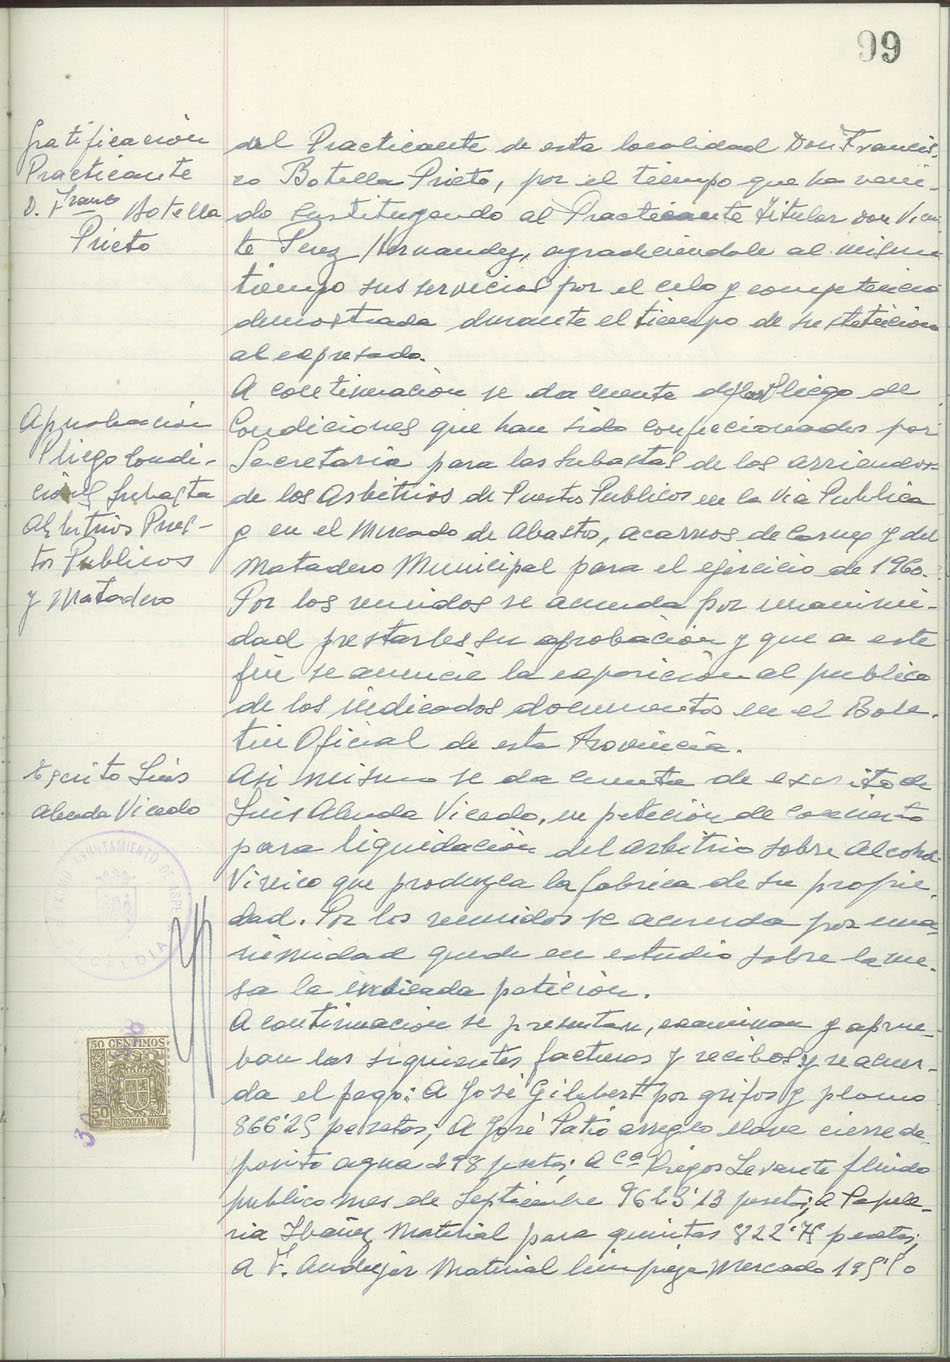 99
Gratificación
Practicante
D. Franco Botella
Prieto
del Practicante de esta localidad Don Francis-
co Botella Prieto, por el tiempo que ha veni-
do sustituyendo al Practicante Titular Don Vicen
te Perez Hernandez, agradeciendole al mismo
tiempo sus servicios por el celo y competencia
demostrada durante el tiempo de sustitucion
al expresado.
Aprobación
Pliego Condi-
ciones Subasta
Arbitrios Pues-
tos Publicos
y Matadero
A continuación se da cuenta de los Pliego de
Condiciones que han sido confeccionados por
Secretaria para las subastas de los arriendos
de los Arbitrios de Puestos Publicos en la Via Publica
y en el Mercado de Abastos, acarreos de Carnes y del
Matadero Municipal para el ejercicio de 1960.
Por los reunidos se acuerda por unanimi-
dad prestarles su aprobación y que a este
fin se anuncie la exposición al publico
de los indicados documentos en el Bole-
tin Oficial de esta Provincia.
Escrito Luis
Abenda Vicedo
Asi mismo se da cuenta de escrito de
Luis Abenda Vicedo, en petición de concierto
para liquidación del arbitrio sobre Alcohol
Vinico que produzca la fabrica de su propie-
dad. Por los reunidos se acuerda por una-
nimidad quede en estudio sobre la me-
sa la indicada petición.
A continuacion se presentan, examinan y aprue-
ban las siguientes facturas y recibos y se acuer-
da el pago: A José Gilbert por grifos y plomo
866'25 pesetas; A José Patió arreglo llave cierre de-
posito agua 298 pesetas; A Ca Riegos Levante fluido
publico mes de Septiembre 9623'13 pesetas; a Papele-
ria Ibañez Material para quintas 822'75 pesetas;
A F. Andujar Material limpieza Mercado 195'50
AYUNTAMIENTO DE ASPE
ALCALDIA
50 CENTIMOS
50
ESPECIAL MOVIL